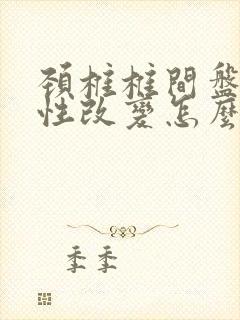 頚椎椎間盤
性改変怎麼
季季